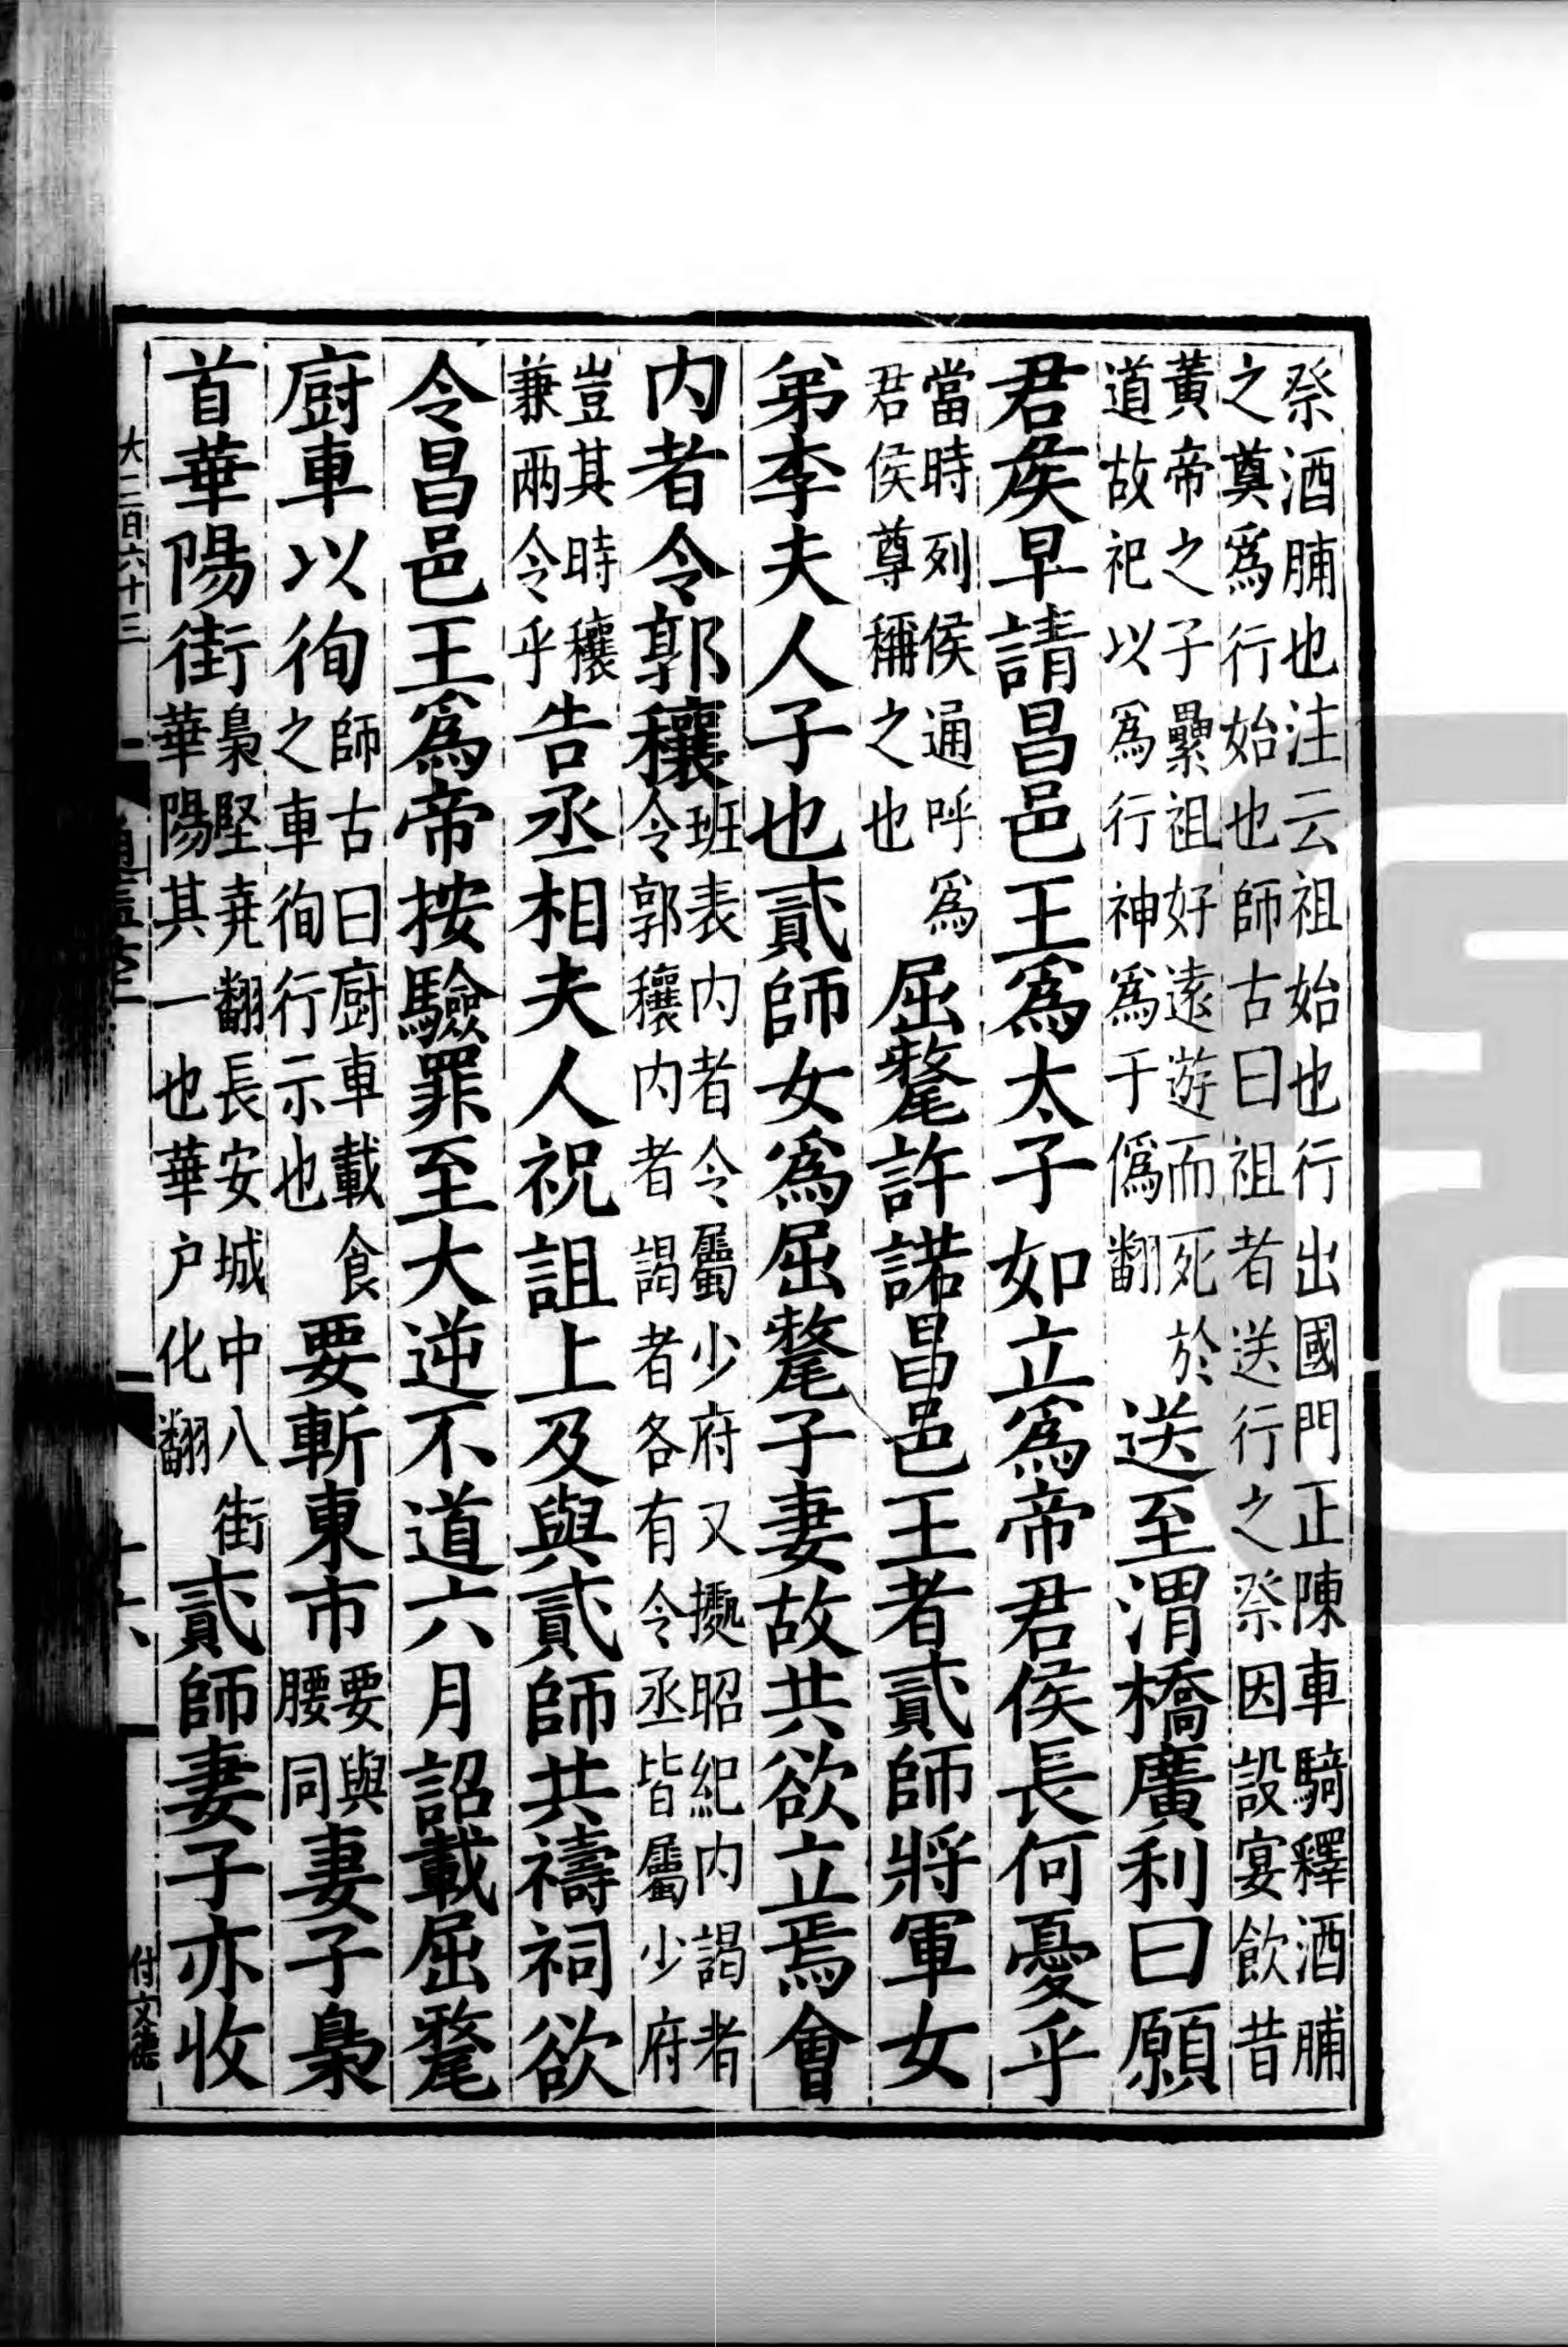 祭酒脯也注云祖始也行出國門正陳車騎釋酒脯
之奠爲行始也師古曰祖者送行之祭因設宴飲昔
黃帝之子纍祖好遠遊而死於道故祀以爲行神爲于僞翻送至渭橋廣利曰願
君侯早請昌邑王爲太子如立爲帝君侯長何憂乎
當時列侯通呼爲君侯尊稱之也屈氂許諾昌邑王者貳師將軍女
弟李夫人子也貳師女爲屈氂子妻故共欲立焉會
内者令郭穰班表内者令屬少府又據昭紀内謁者令郭穰内者謁者各有令丞皆屬少府
豈其時穰兼兩令乎告丞相夫人祝詛上及與貳師共禱祠欲
令昌邑王爲帝按驗罪至大逆不道六月詔載屈氂
廚車以徇師古曰廚車載食之車徇行示也要斬東市要與腰同妻子梟
首華陽街梟堅堯翻長安城中八街華陽其一也華户化翻貳師妻子亦收
大二百六十三
付文德